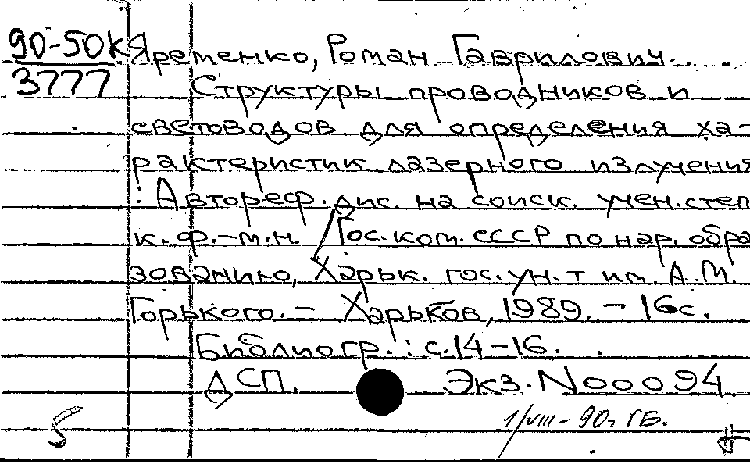 90-50к Яременко, Роман Гаврилович.
3777 Структуры проводников и
световодов для определения ха-
рактеристик лазерного излучения
: Автореф. дис. на соиск. учен. степ
к. ф.-м.н. / Гос. ком. СССР по нар. обра
зованию, Харьк. гос. ун-т им. А.М.
Горького. – Харьков, 1989. – 16с.
Библиогр.: с. 14-16.
ДСП. Экз. N00094
1/VIII-90г. ГБ.